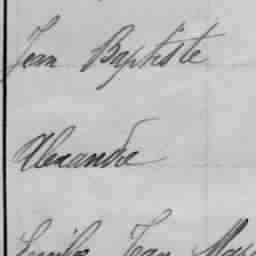 Jean Baptiste
Alexandre
Jean